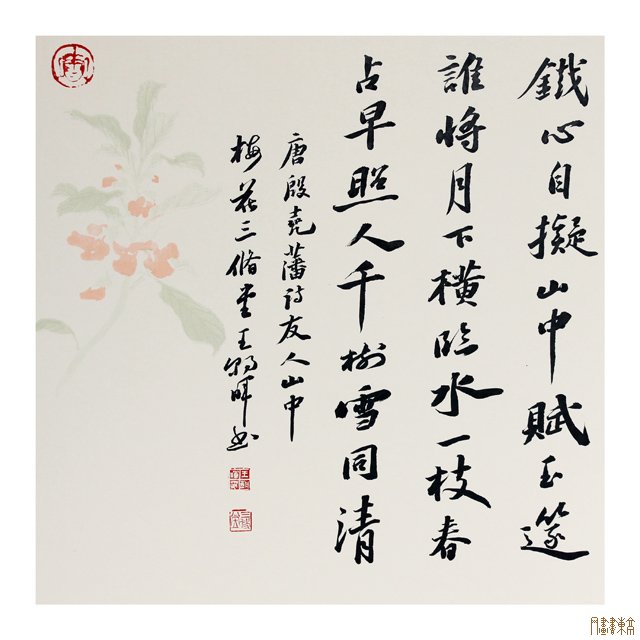 鐵心自擬山中賦玉篴
誰將月下橫臨水一枝春
占早照人千樹雪同清
唐殷堯藩詩友人山中
梅花三脩堂王暉書